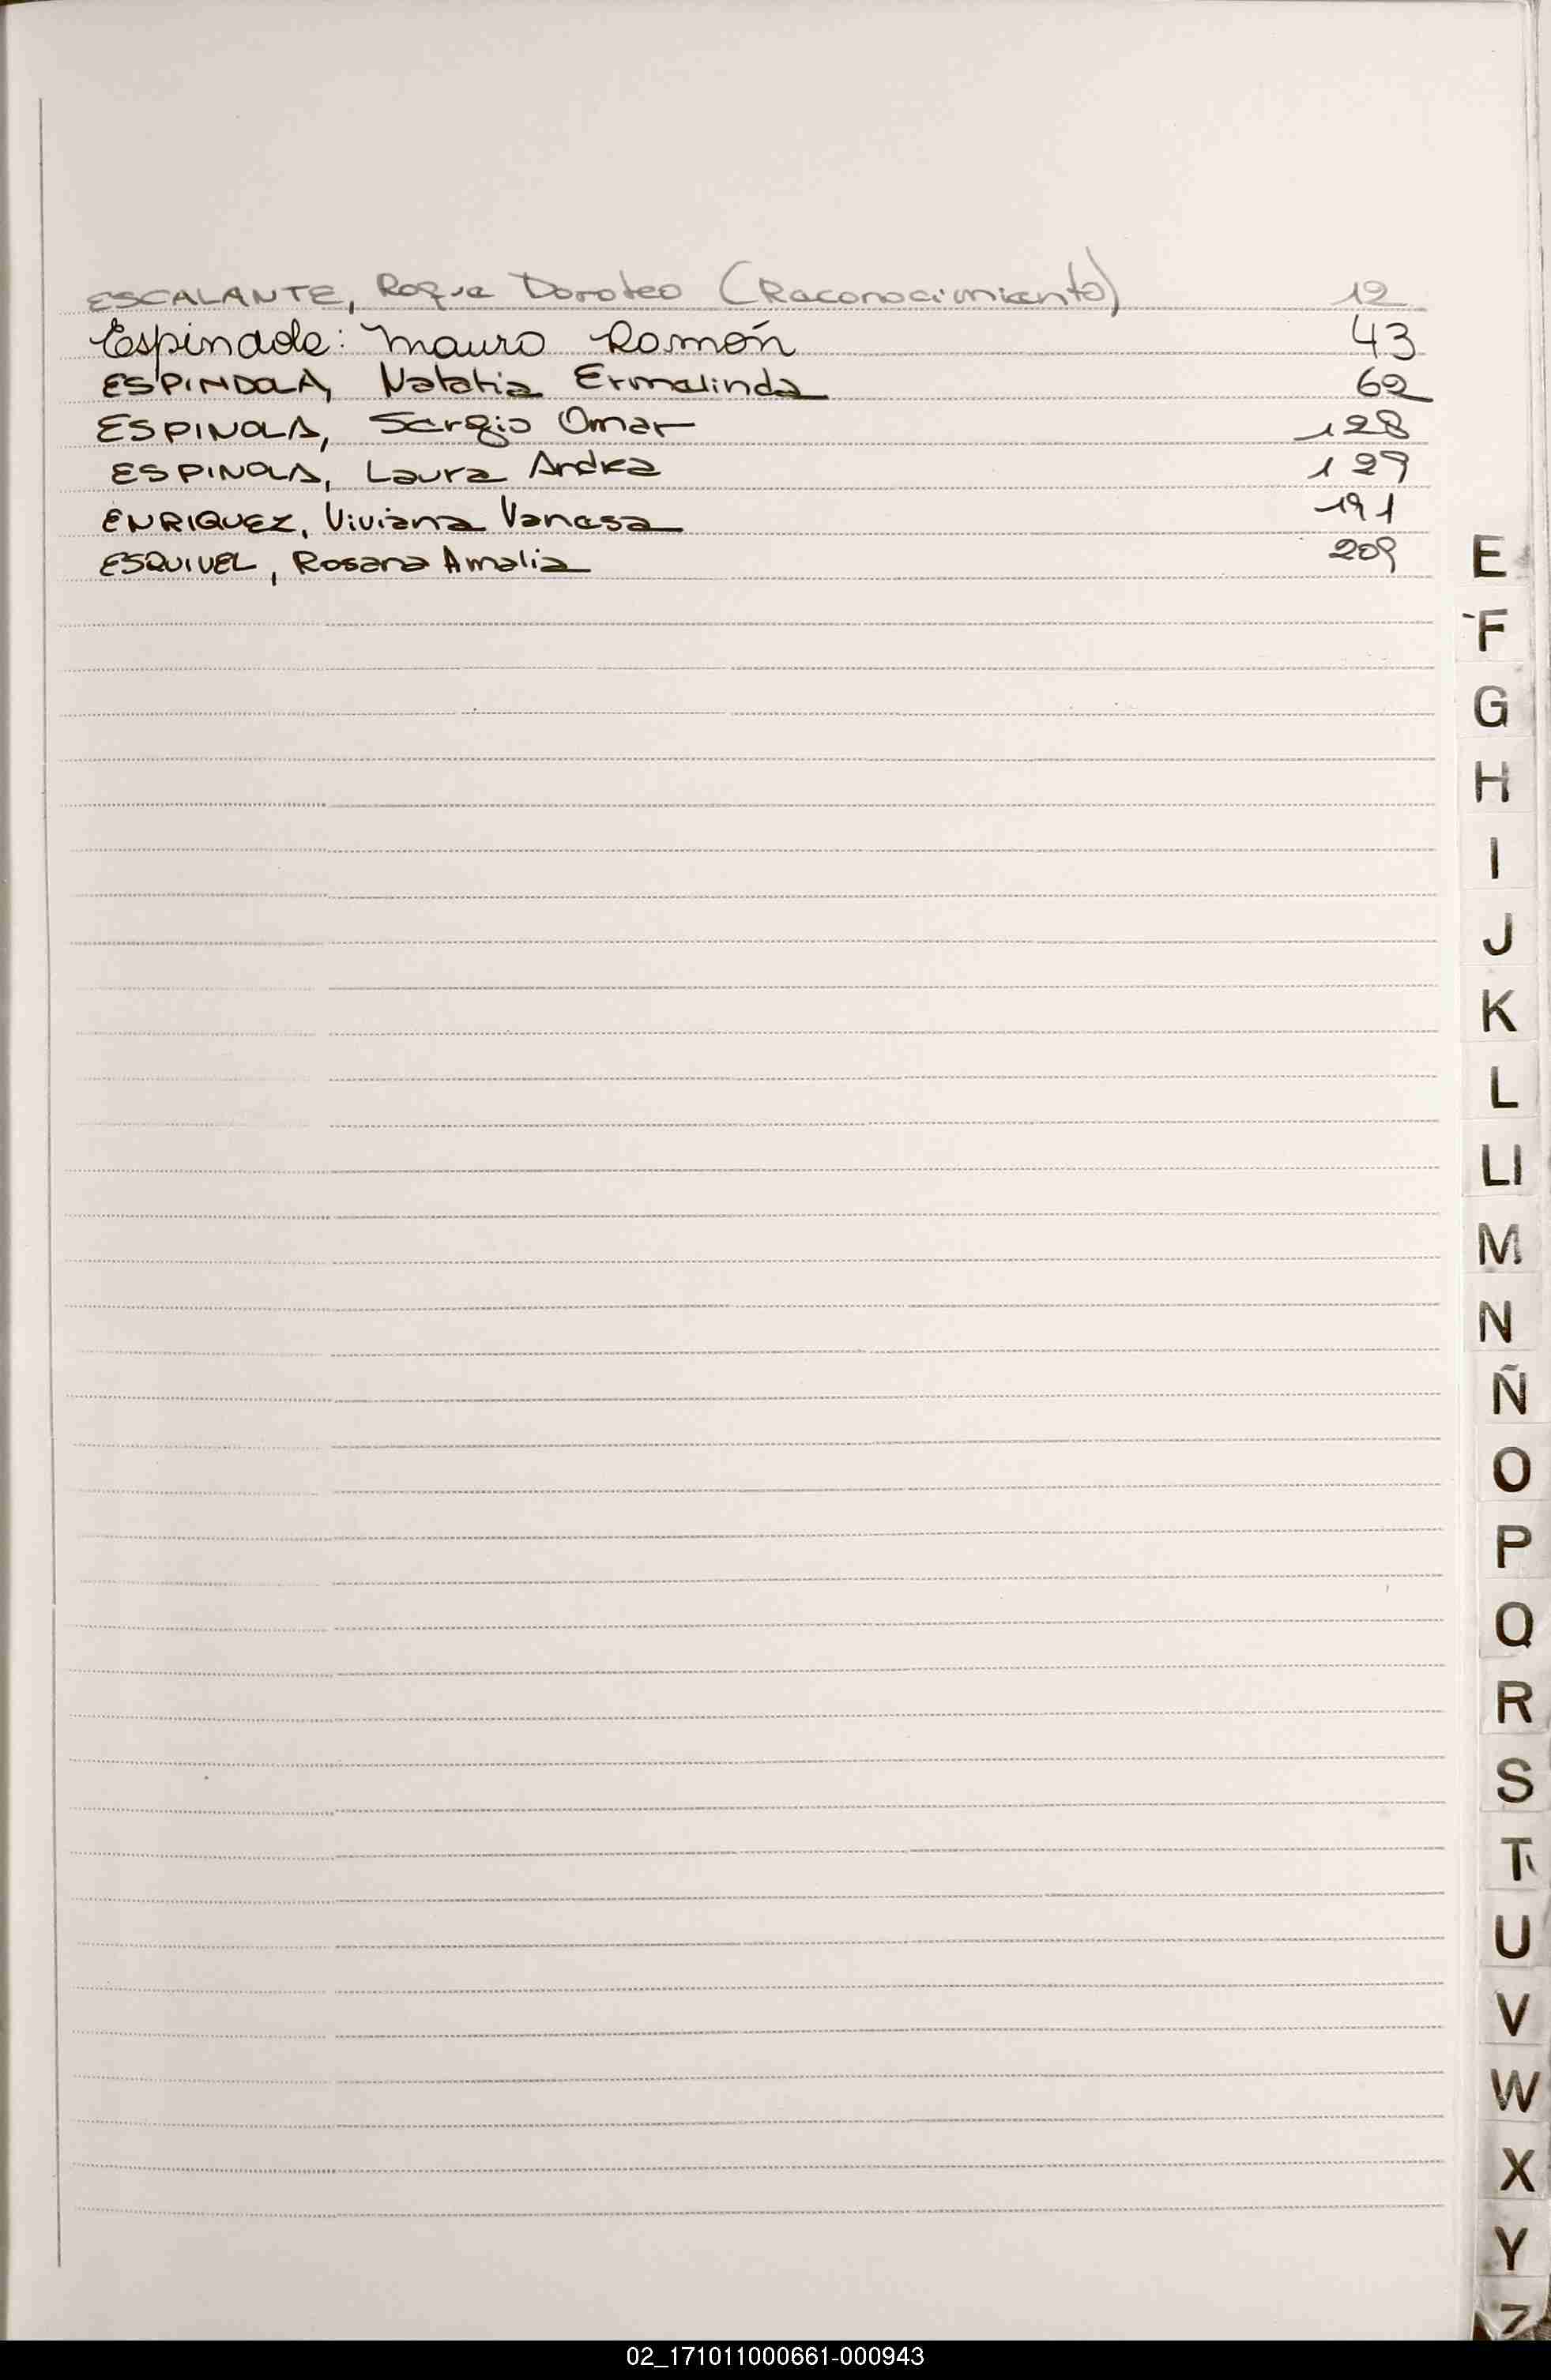 ESCALANTE, Roque Doroteo (Reconocimiento) 12
Espindola: Mauro Ramón 43
ESPINDOLA, Natalia Ermelinda 62
ESPINOLA, Sergio Omar 128
ESPINOLA, Laura Andrea 129
ENRIQUEZ, Viviana Vanesa 191
ESQUIVEL, Rosana Amalia 209
E
F
G
H
I
J
K
L
Ll
M
N
Ñ
O
P
Q
R
S
T
U
V
W
X
Y
Z
02_171011000661-000943